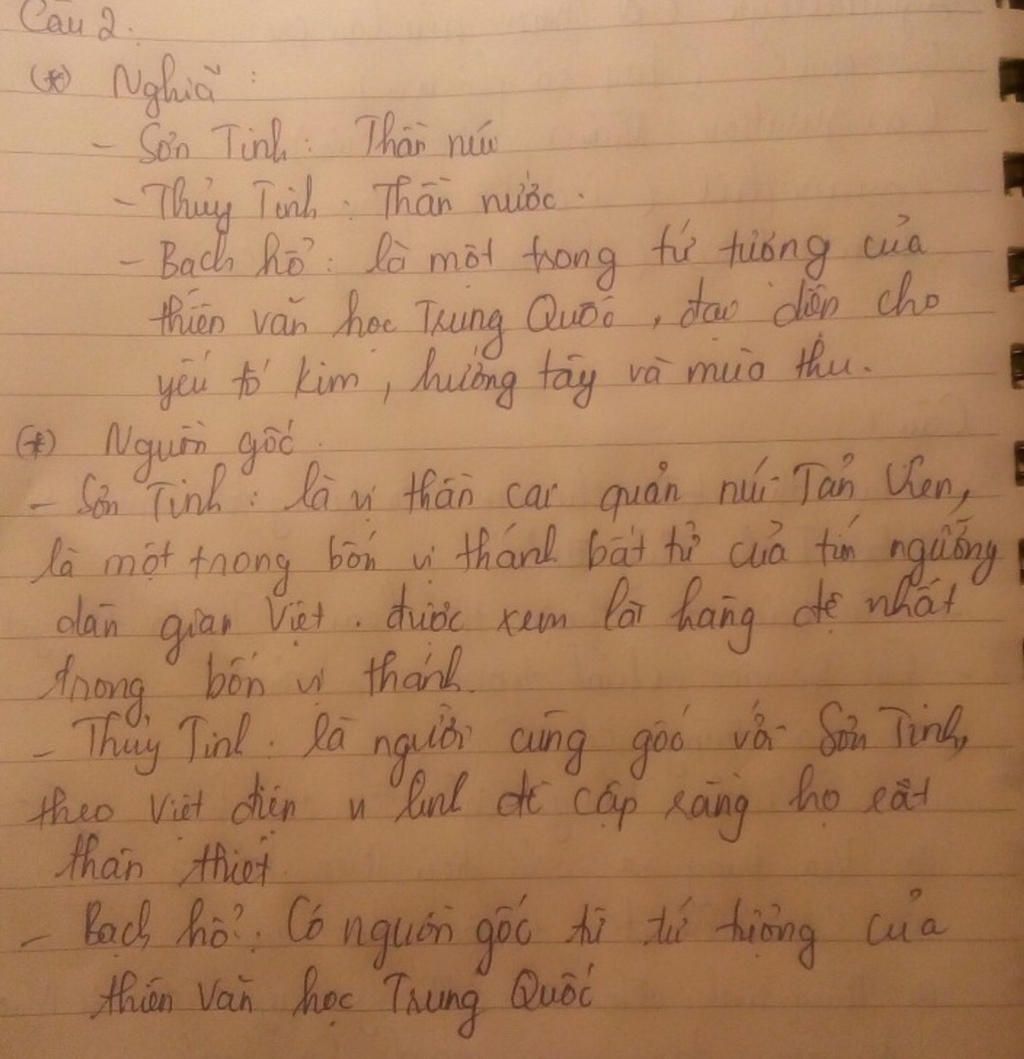 Câu 2.
(*) Nghĩa :
- Sơn Tinh : Thần núi
- Thủy Tinh : Thần nước .
- Bạch hổ : là một trong tứ tượng của
thiên văn học Trung Quốc , đại diện cho
yếu tố kim , hướng tây và mùa thu .
(*) Nguồn gốc .
- Sơn Tinh : là vị thần cai quản núi Tản Viên,
là một trong bốn vị thánh bất tử của tín ngưỡng
dân gian Việt . được xem là hàng đệ nhất
trong bốn vị thánh.
- Thủy Tinh . là người cùng gốc với Sơn Tinh,
theo Việt điện u linh đề cập rằng họ rất
thân thiết .
- Bạch hổ : Có nguồn gốc từ tứ tượng của
thiên văn học Trung Quốc